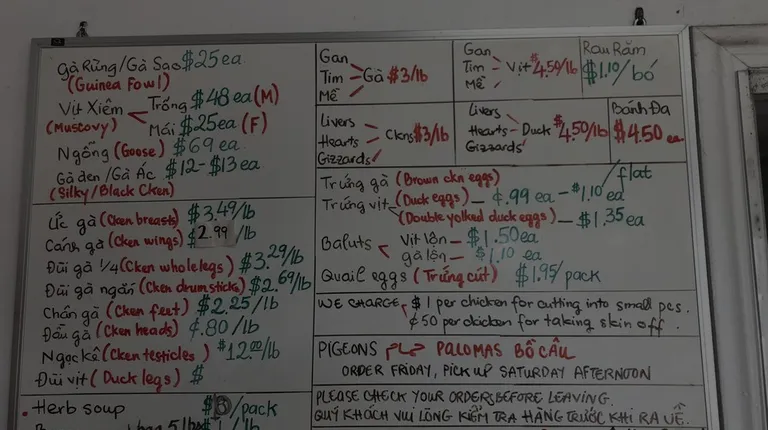 Gà Rừng/Gà Sao $25 ea
(Guinea Fowl)
Vịt Xiêm Trống $48 ea (M)
(Muscovy) Mái $25 ea (F)
Ngỗng (Goose) $69 ea
Gà đen/Gà Ác $12-$13 ea
(Silky/Black Cken)
Ức gà (Cken breasts) $3.49/lb
Cánh gà (Cken wings) $2.99/lb
Đùi gà 1/4 (Cken whole legs) $3.29/lb
Đùi gà ngắn (Cken drumsticks) $2.69/lb
Chân gà (Cken feet) $2.25/lb
Đầu gà (Cken heads) ¢.80/lb
Ngọc kê (Cken testicles) $12.00/lb
Đùi vịt (Duck legs) $
Herb soup /pack
Gan
Tim Gà $3/lb
Mề
Gan
Tim Vịt $4.50/lb
Mề
Rau Răm
$1.10/bó
Livers
Hearts Ckns $3/lb
Gizzards
Livers
Hearts Duck $4.50/lb
Gizzards
Bánh Đa
$4.50 ea
Trứng gà (Brown ckn eggs) /flat
Trứng vịt (Duck eggs) - ¢.99 ea - $1.10 ea
(Double yolked duck eggs) - $1.35 ea
Baluts Vịt lộn - $1.50 ea
gà lộn - $1.10 ea
Quail eggs (Trứng cút) $1.95/pack
WE CHARGE $1 per chicken for cutting into small pcs.
¢50 per chicken for taking skin off.
PIGEONS حمام PALOMAS BỒ CÂU
ORDER FRIDAY, PICK UP SATURDAY AFTERNOON
PLEASE CHECK YOUR ORDERS BEFORE LEAVING.
QUÝ KHÁCH VUI LÒNG KIỂM TRA HÀNG TRƯỚC KHI RA VỀ.